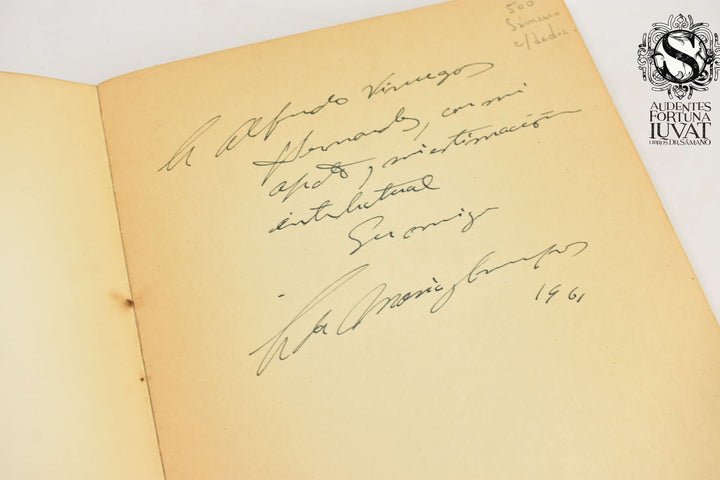 500
Sámano
c/dedic.
A Alfredo
Hernandez, con mi
afecto y mi estimación
intelectual
Su amigo
1961
S
AUDENTES
FORTUNA
IUVAT
LIBROS DR. SÁMANO